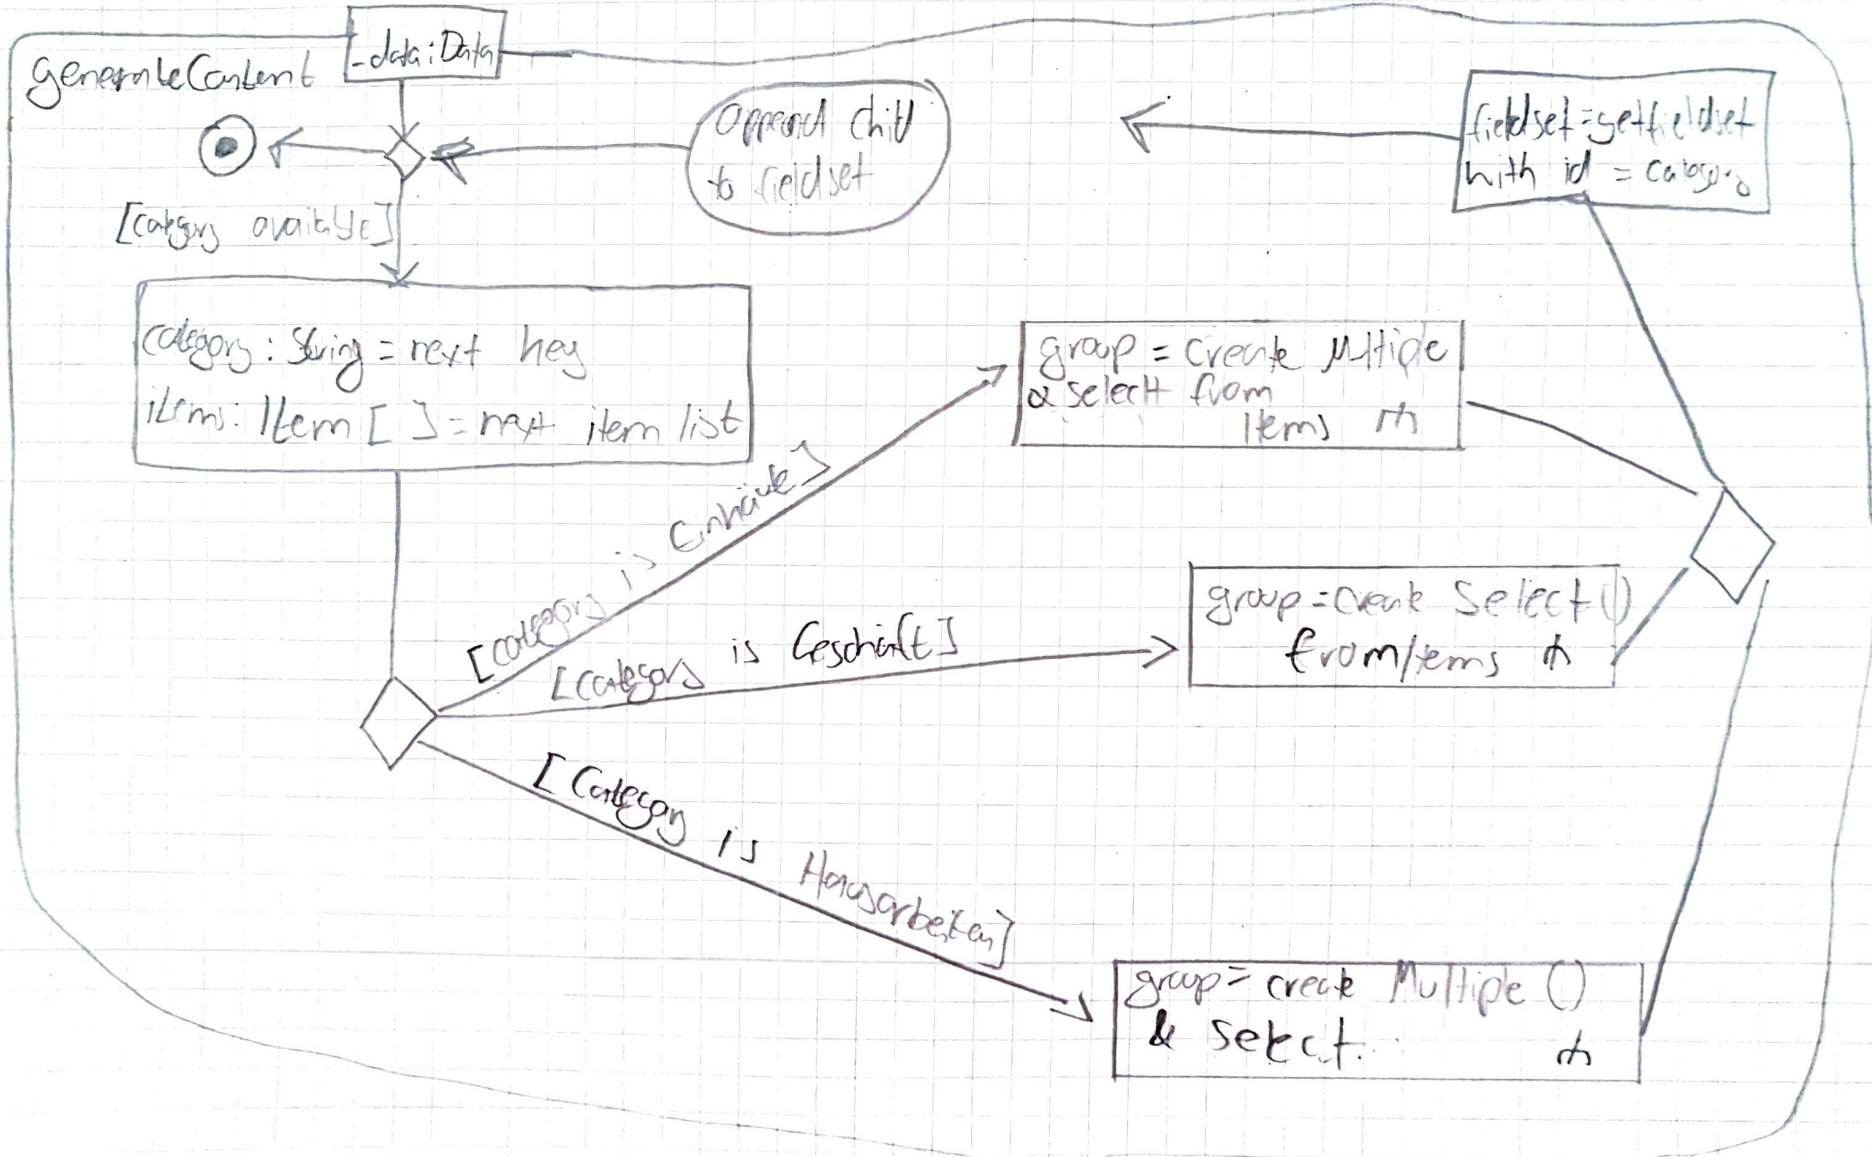 generateContent
_data:Data
append child
to fieldset
fieldset=getfieldset
with id = category
[category available]
category: String = next key
items: Item [ ] = next item list
group = create Multiple
& select from
Items
[category is Einkäufe]
[category is Geschäft]
group = create Select()
from Items
[Category is Hausarbeiten]
group = create Multiple ()
& select...